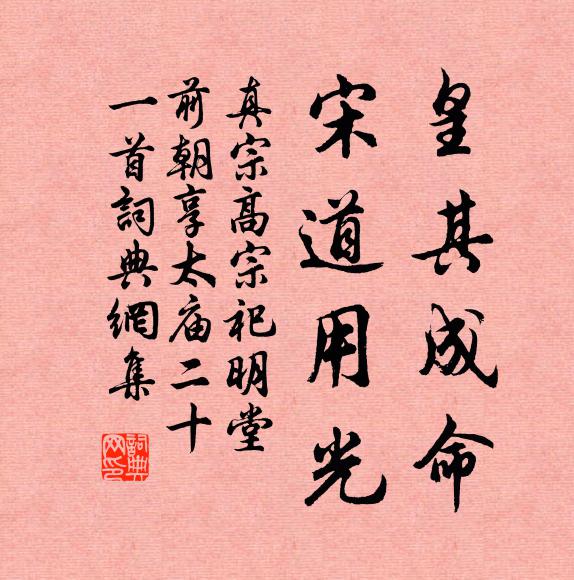 皇其成命
宋道用光
真宗高宗祀明堂
前朝享太庙二十
一首詞典網集
詞典网印